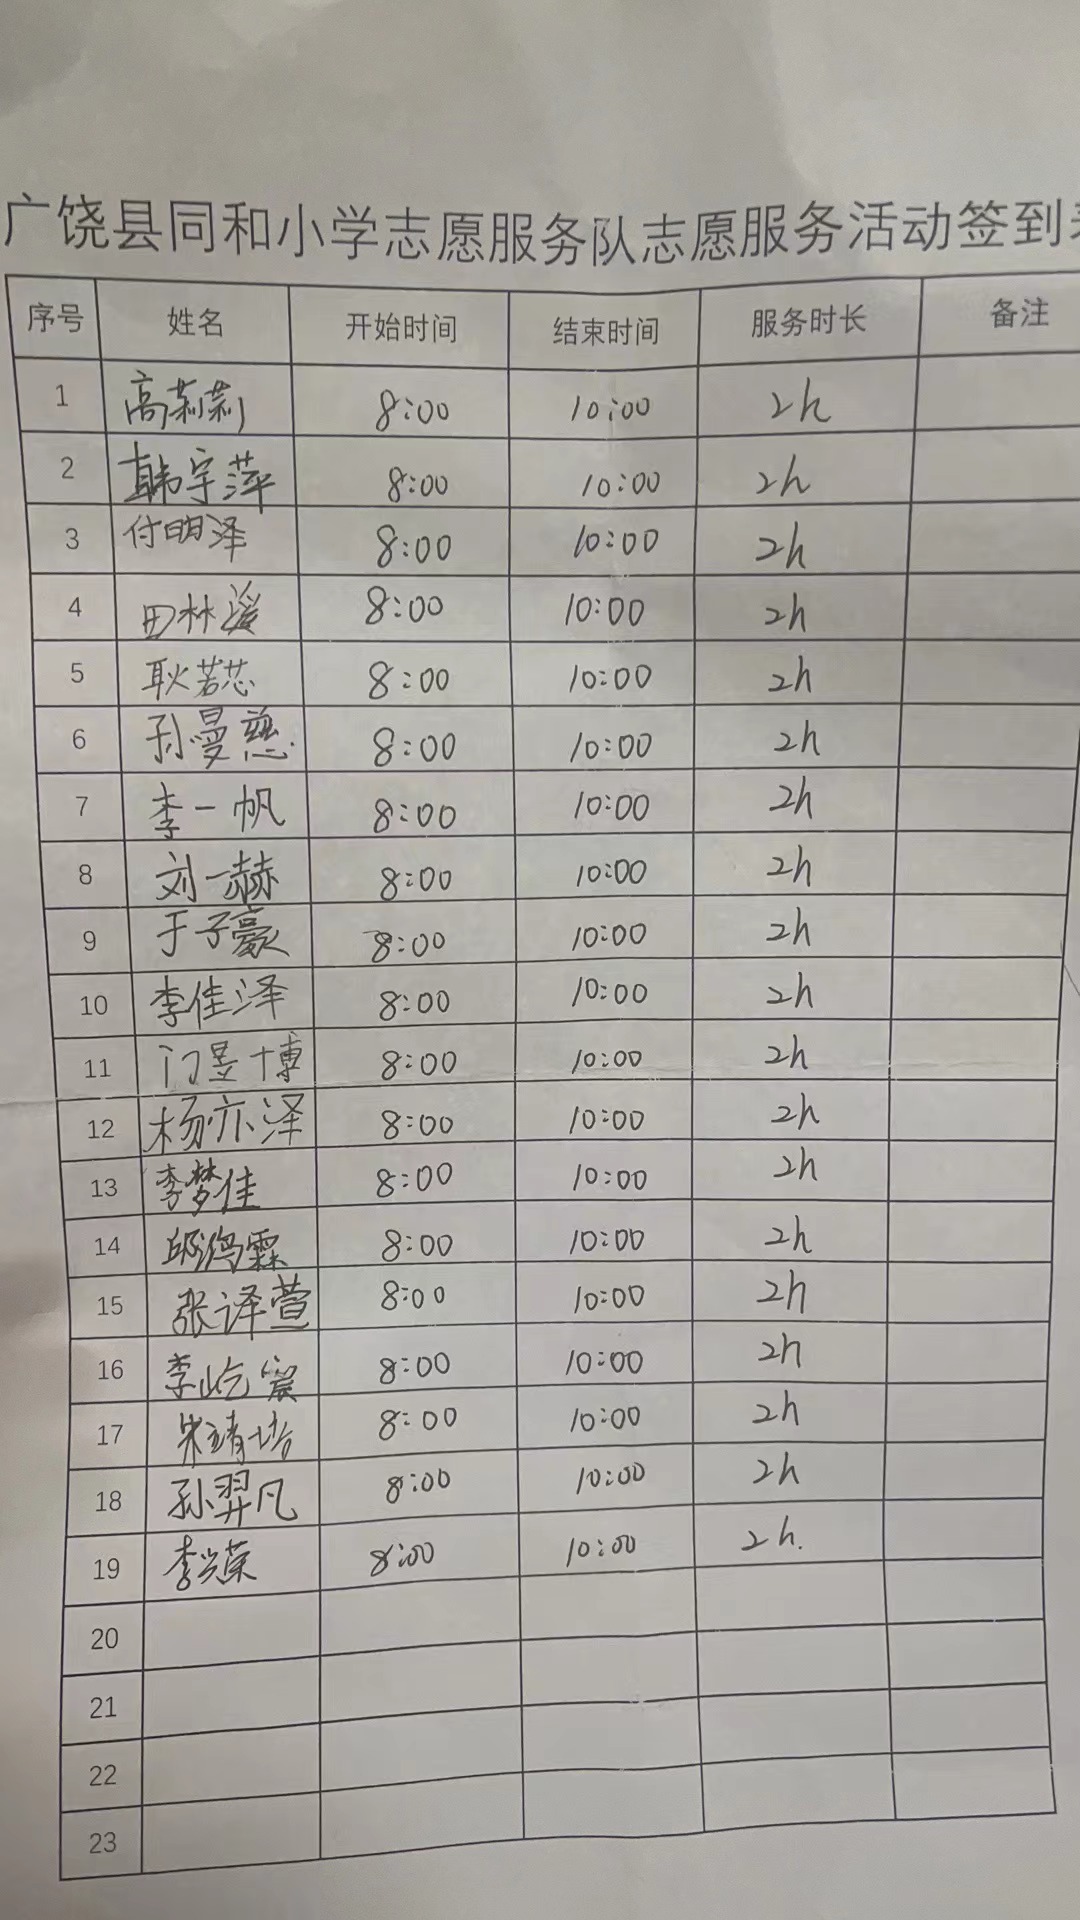 广饶县同和小学志愿服务队志愿服务活动签到表
序号 姓名 开始时间 结束时间 服务时长 备注
1 高莉莉 8:00 10:00 2h
2 韩宇萍 8:00 10:00 2h
3 付明泽 8:00 10:00 2h
4 田林溪 8:00 10:00 2h
5 耿若芯 8:00 10:00 2h
6 孙曼慈 8:00 10:00 2h
7 李一帆 8:00 10:00 2h
8 刘一赫 8:00 10:00 2h
9 于子豪 8:00 10:00 2h
10 李佳泽 8:00 10:00 2h
11 门昱博 8:00 10:00 2h
12 杨亦泽 8:00 10:00 2h
13 李梦佳 8:00 10:00 2h
14 8:00 10:00 2h
15 张译萱 8:00 10:00 2h
16 李屹宸 8:00 10:00 2h
17 宋靖培 8:00 10:00 2h
18 孙羿凡 8:00 10:00 2h
19 李兴荣 8:00 10:00 2h.
20
21
22
23